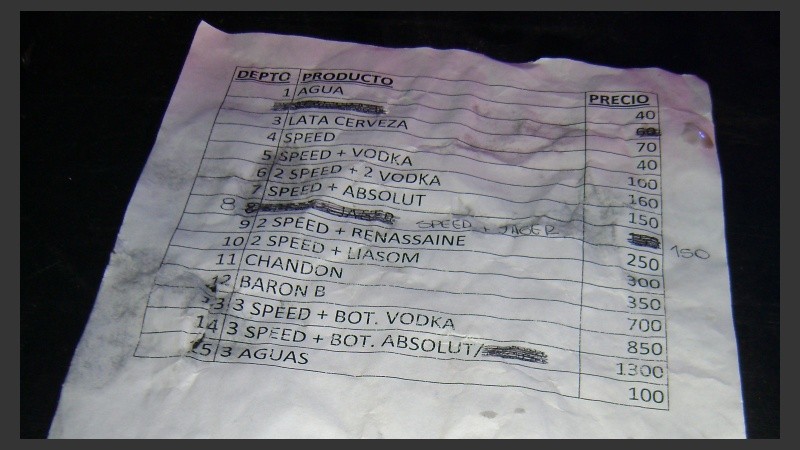 DEPTO PRODUCTO PRECIO
1 AGUA 40
3 LATA CERVEZA 70
4 SPEED 40
5 SPEED + VODKA 100
6 2 SPEED + 2 VODKA 160
7 SPEED + ABSOLUT 150
8 SPEED + JAGER 150
9 2 SPEED + RENASSAINE 250
10 2 SPEED + LIASOM 300
11 CHANDON 350
12 BARON B 700
13 3 SPEED + BOT. VODKA 850
14 3 SPEED + BOT. ABSOLUT/ 1300
15 3 AGUAS 100